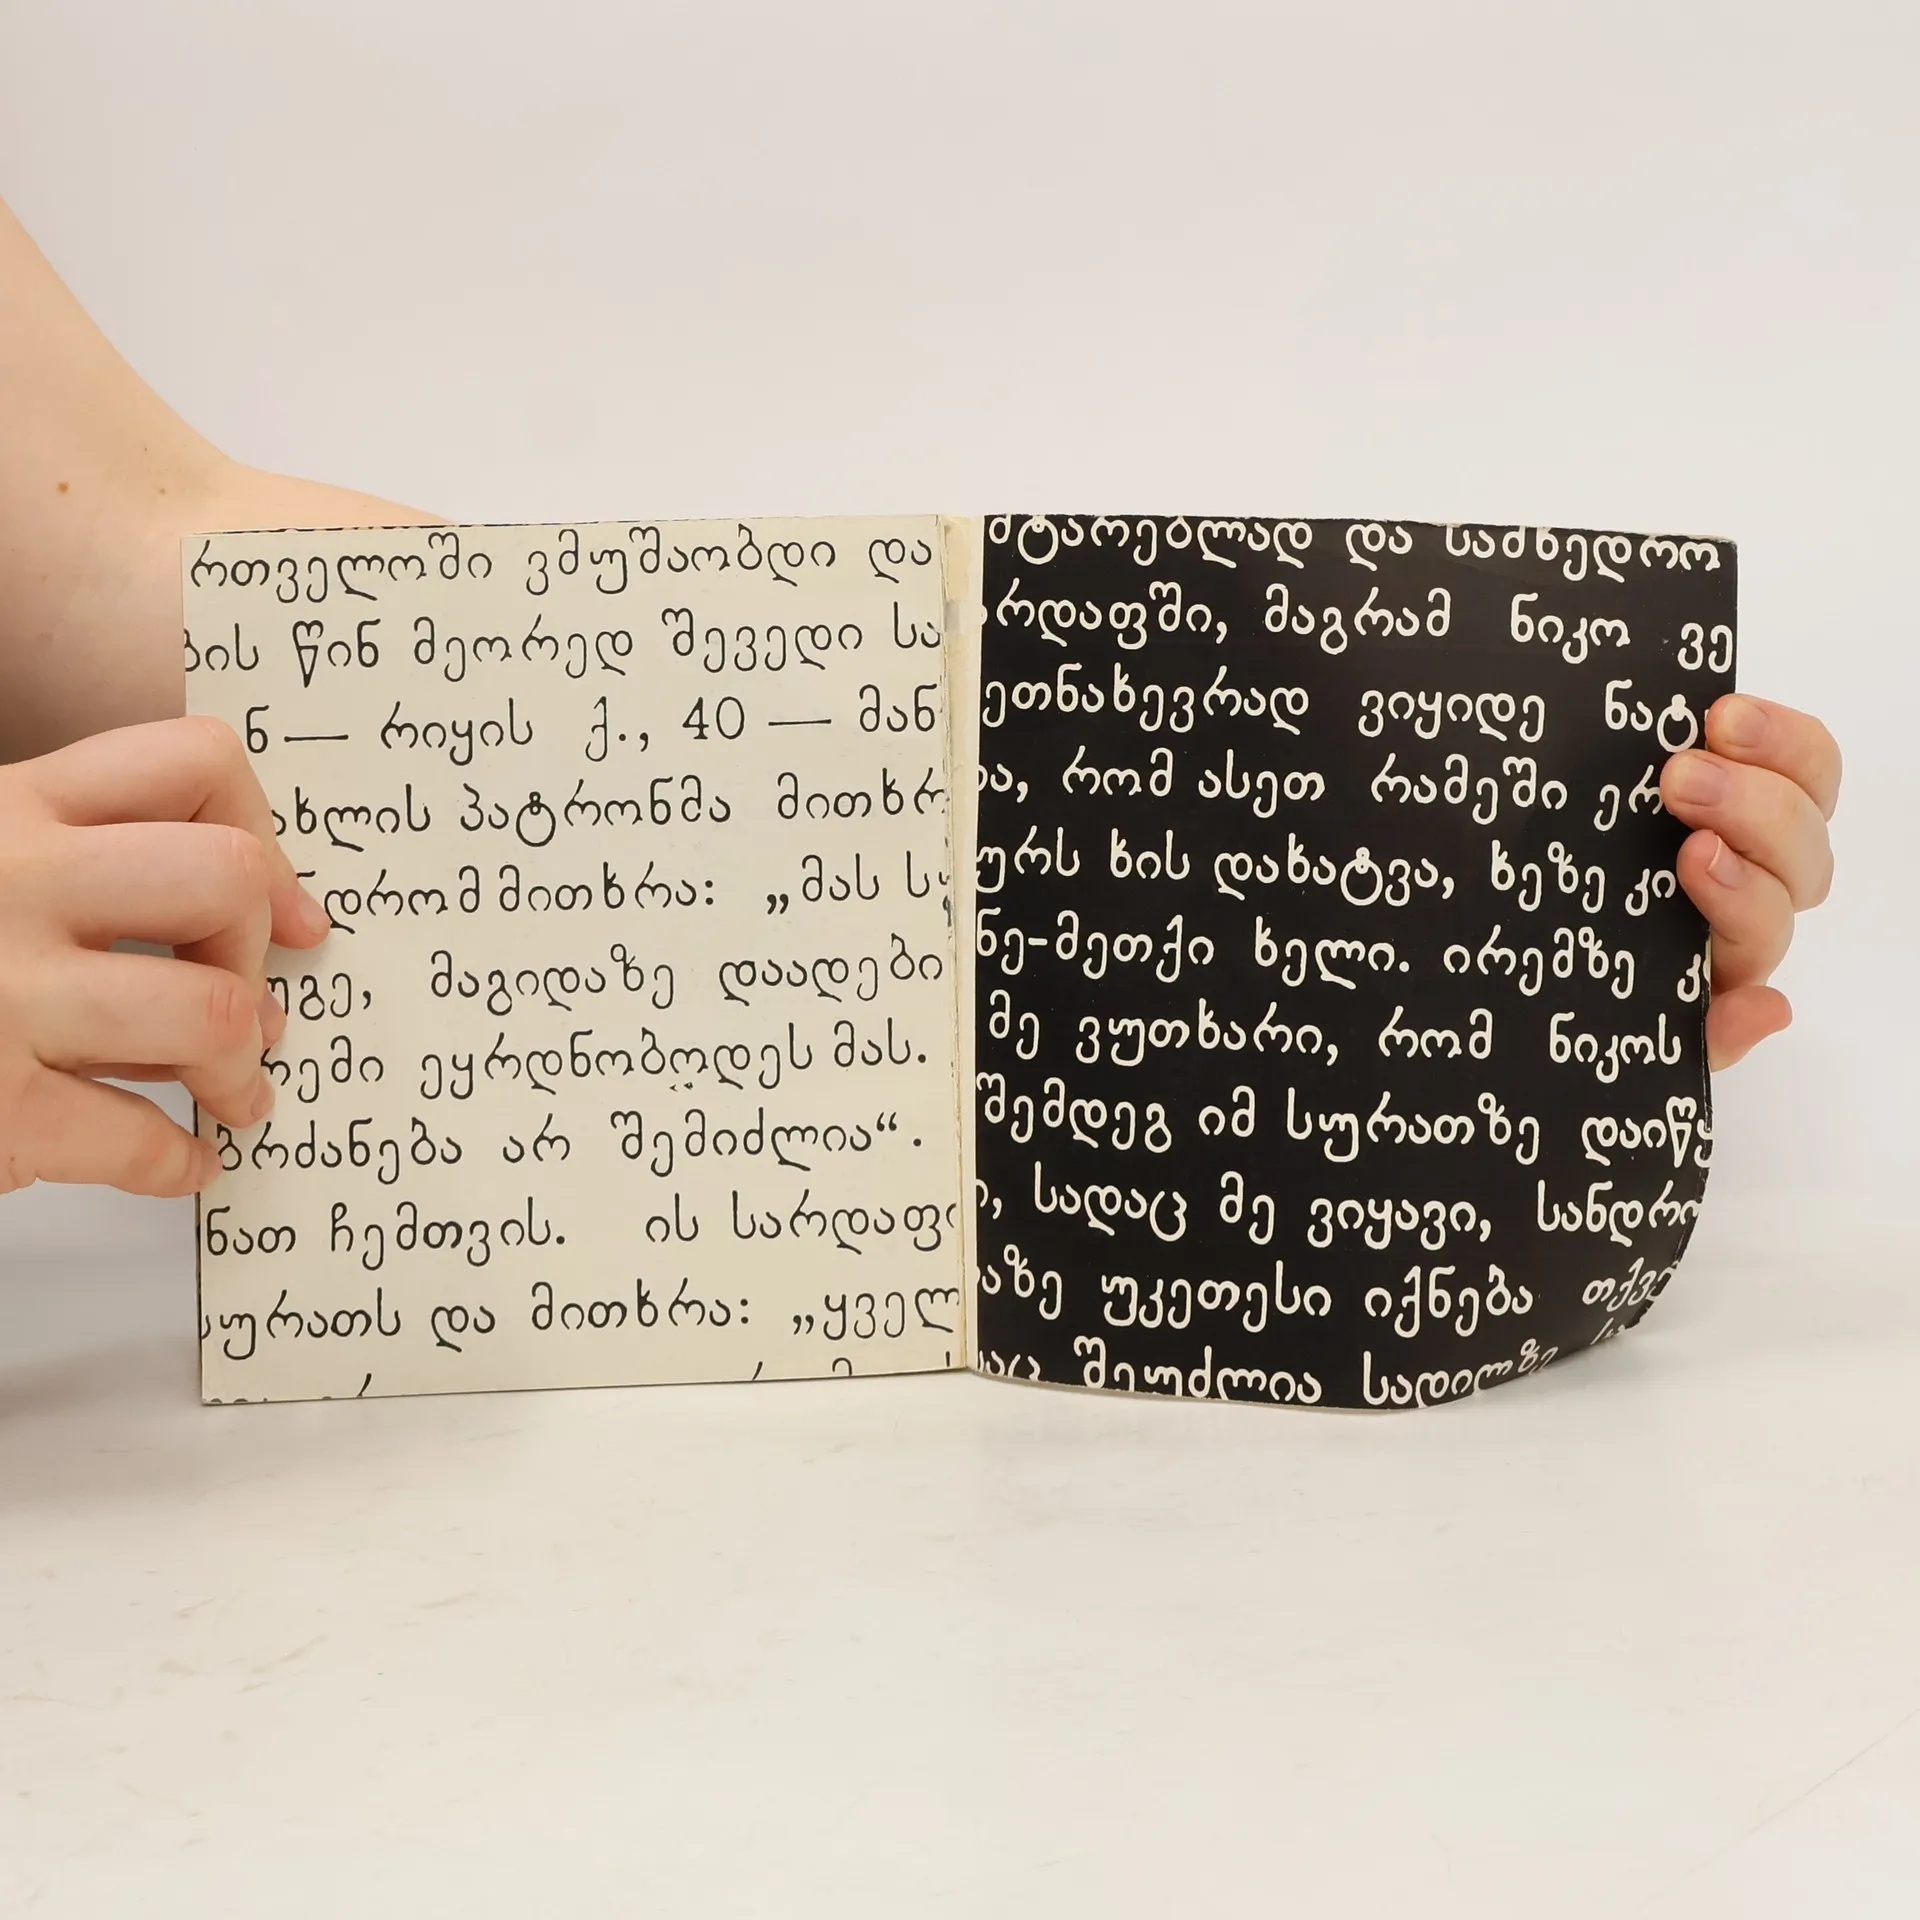 რთველოში ვმუშაობდი და
წინ მეორედ შევედი სა
ნ — რიყის ქ., 40 — მან
ახლის პატრონმა მითხრ
ნდრომ მითხრა: „მას სუ
უგე, მაგიდაზე დაადები
რემი ეყრდნობოდეს მას.
ბრძანება არ შემიძლია“.
ნათ ჩემთვის. ის სარდაფ
სურათს და მითხრა: „ყველ
მტარებლად და სამხედრო
რდაფში, მაგრამ ნიკო ვე
ეთნახევრად ვიყიდე ნატ
და, რომ ასეთ რამეში ერ
ურს ხის დახატვა, ხეზე კი
ნე-მეთქი ხელი. ირემზე კ
მე ვუთხარი, რომ ნიკოს
შემდეგ იმ სურათზე დაიწყ
სადაც მე ვიყავი, სანდრო
აზე უკეთესი იქნება თქვე
შეუძლია სადილზე